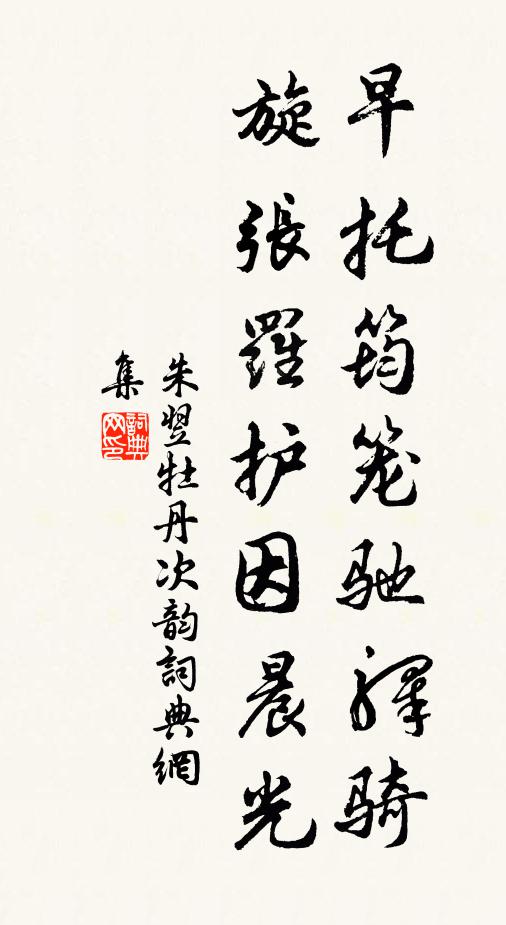 早托筠笼驰驿骑
旋張羅护因晨光
朱翌牡丹次韵詞典網
集
詞典网印